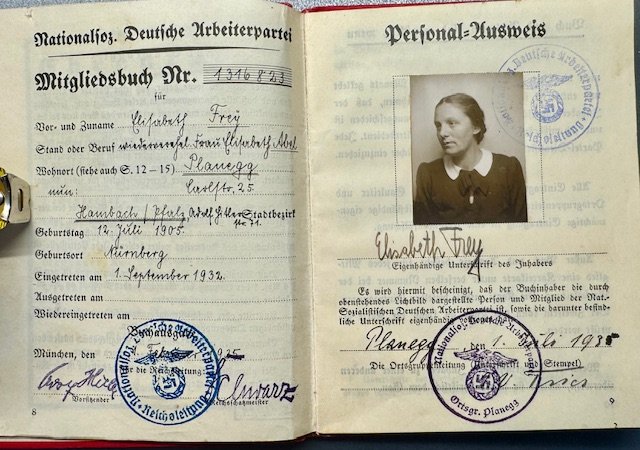 Nationalsoz. Deutsche Arbeiterpartei
Mitgliedsbuch Nr. 1316823
für
Vor- und Zuname Elisabeth Frey
Stand oder Beruf Frau Elisabeth Abel
Wohnort (siehe auch S. 12–15) Planegg
nun: Carlstr. 25
Hambach / Pfalz Adolf Hitler Stadtbezirk
str. 71.
Geburtstag 12. Juli 1905.
Geburtsort Nürnberg
Eingetreten am 1. September 1932.
Ausgetreten am
Wiedereingetreten am
München, den
für die Reichsleitung:
Schwarz
Vorsitzender Reichsschatzmeister
8
Nationalsoz. Deutsche Arbeiterpartei
Reichsleitung
Personal-Ausweis
Elisabeth Frey
Eigenhändige Unterschrift des Inhabers
Es wird hiermit bescheinigt, daß der Buchinhaber die durch
obenstehendes Lichtbild dargestellte Person und Mitglied der Nat-
Sozialistischen Deutschen Arbeiterpartei ist, sowie die darunter befind-
liche Unterschrift eigenhändig
Planegg, den 1. Juli 1935
Die Ortsgruppenleitung (Unterschrift und Stempel)
Nationalsoz. Deutsche Arbeiterpartei
Ortsgr. Planegg
9